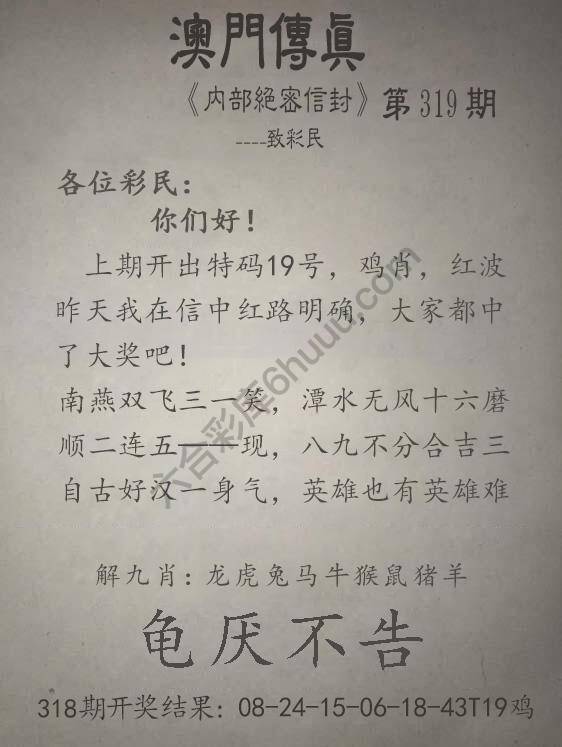 澳門傳眞
《内部絕密信封》第319期
----致彩民
各位彩民：
你们好！
上期开出特码19号，鸡肖，红波
昨天我在信中红路明确，大家都中
了大奖吧！
南燕双飞三一笑，潭水无风十六磨
顺二连五——现，八九不分合吉三
自古好汉一身气，英雄也有英雄难
解九肖：龙虎兔马牛猴鼠猪羊
龟厌不告
318期开奖结果：08-24-15-06-18-43T19鸡
六合彩库6huuu.com